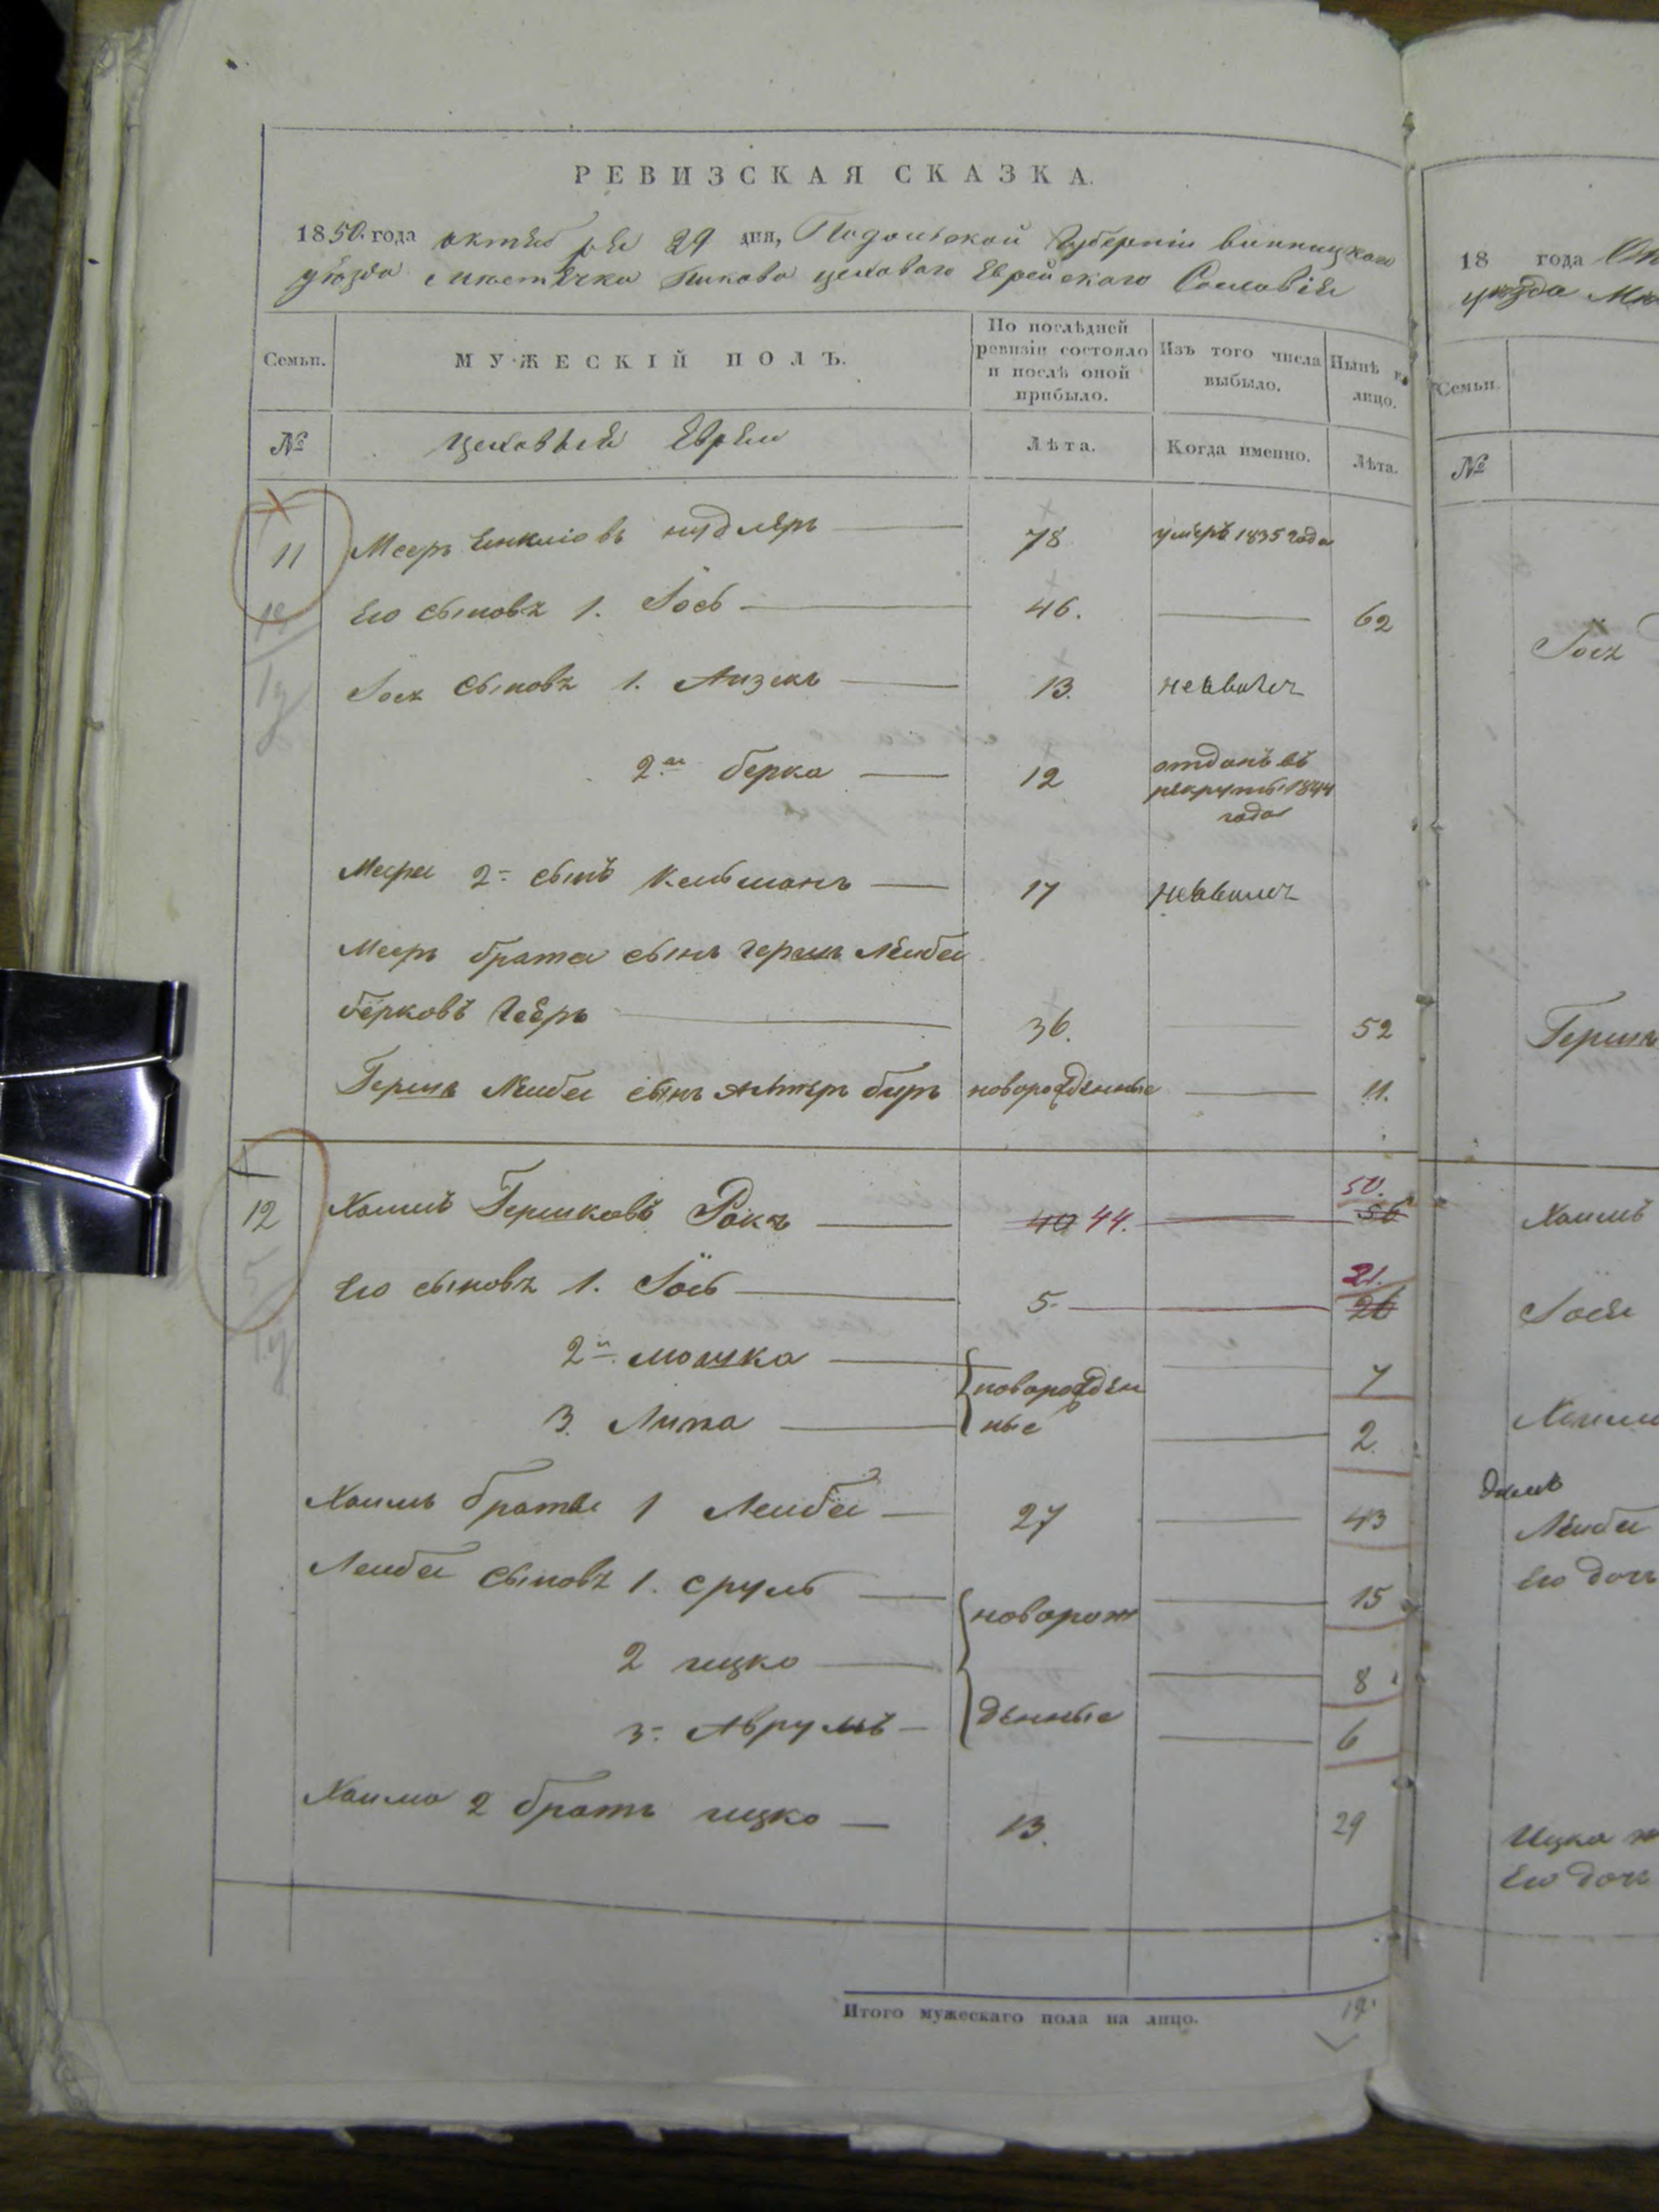 РЕВИЗСКАЯ СКАЗКА.
1850 года октября 29 дня, Подольской Губерніи винницкаго
уѣзда мѣстечка Пикова цеховаго Еврейскаго Сословія
Семьи.
МУЖЕСКІЙ ПОЛЪ.
По послѣдней ревизіи состояло и послѣ оной прибыло.
Изъ того числа выбыло.
Нынѣ на лицо.
№
цеховые Евреи
Лѣта.
Когда именно.
Лѣта.
11 Меер Енкліовъ нудлеръ 78 умеръ 1835 года
Его сыновя 1. Іось 46. 62
Іося сыновя 1. Аизекъ 13. неявилея
2й берко 12 отданъ въ
рекруты 1844
года
Меера 2й сынъ Кельманъ 17 неявилея
Меера брата сынъ герш Леиба
берковъ 36. 52
Герша Леиба сынъ новорожденные 11.
12 Хаимъ Гершковъ Ракъ 40 44. 50. 56
Его сыновя 1. Іось 5. 21. 26
2й мошко новорожден 7
3. Липа ные 2.
Хаима братя 1 Леиба 27 43
Леиба сыновя 1. сруль новорож 15
2 ицко 8
3й Аврумъ денные 6
Хаима 2 братъ ицко 13. 29
Итого мужескаго пола на лицо.
18 года
уѣзда
Семьи.
№
Іося
Герша
Хаима
Іося
Леиба
Его доч
Ицка
Его доч